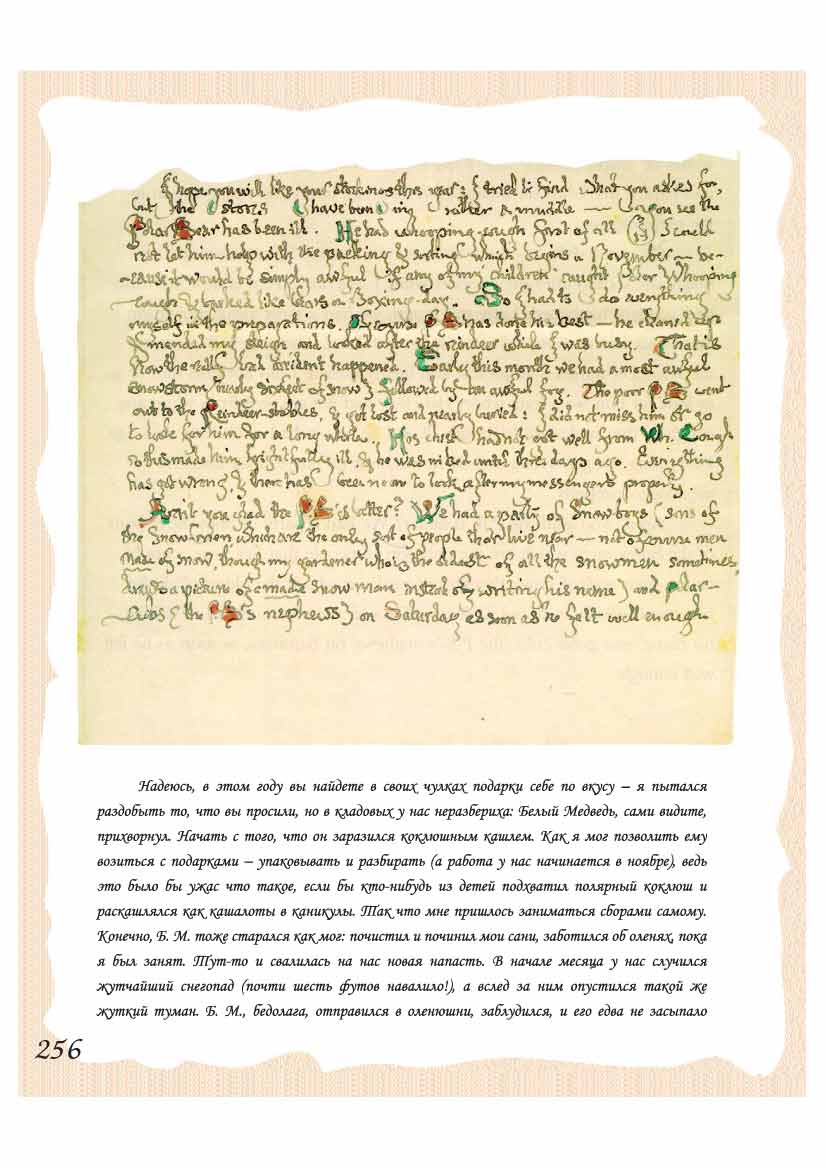 I hope you will like your stockings this year: I tried to find what you asked for,
but the stores have been in rather a muddle — you see the
Polar Bear has been ill. He had whooping-cough first of all I could
not let him help with the packing & sorting which begins in November — be-
cause it would be simply awful if any of my children caught Polar Whooping
Cough & barked like bears on Boxing-day. So I had to do everything
myself in the preparations. Of course PB has done his best — he cleaned up
& mended my sleigh and looked after the reindeer while I was busy. That is
how the really bad accident happened. Early this month we had a most awful
snowstorm (nearly six feet of snow) followed by an awful fog. The poor PB went
out to the Reindeer-stables, & got lost and nearly buried: I did not miss him or go
to look for him for a long while. His chest hadn't got well from Wh. Cough
so this made him frightfully ill, & he was in bed until three days ago. Everything
has got wrong, & there has been no one to look after my messengers properly.
Aren't you glad the P.B. is better? We had a party of Snowboys (sons of
the Snowmen which are the only sort of people that live near — not of course men
made of snow, though my gardener who is the oldest of all the snowmen sometimes
draws a picture of a made snow man instead of writing his name) and polar-
cubs (the PB's nephews) on Saturday as soon as he felt well enough
Надеюсь, в этом году вы найдете в своих чулках подарки себе по вкусу – я пытался
раздобыть то, что вы просили, но в кладовых у нас неразбериха: Белый Медведь, сами видите,
прихворнул. Начать с того, что он заразился коклюшным кашлем. Как я мог позволить ему
возиться с подарками – упаковывать и разбирать (а работа у нас начинается в ноябре), ведь
это было бы ужас что такое, если бы кто-нибудь из детей подхватил полярный коклюш и
раскашлялся как кашалоты в каникулы. Так что мне пришлось заниматься сборами самому.
Конечно, Б. М. тоже старался как мог: почистил и починил мои сани, заботился об оленях, пока
я был занят. Тут-то и свалилась на нас новая напасть. В начале месяца у нас случился
жутчайший снегопад (почти шесть футов навалило!), а вслед за ним опустился такой же
жуткий туман. Б. М., бедолага, отправился в оленюшни, заблудился, и его едва не засыпало
256